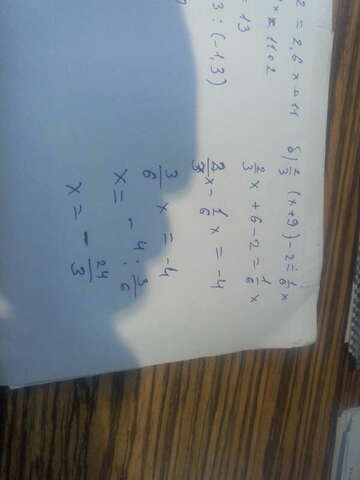 2 = 2,6x + 11
= 13
3 : (-1,3)
б) 2/3 (x+9) - 2 = 1/6 x
2/3 x + 6 - 2 = 1/6 x
2/3 x - 1/6 x = -4
3/6 x = -4
x = -4 : 3/6
x = - 24/3